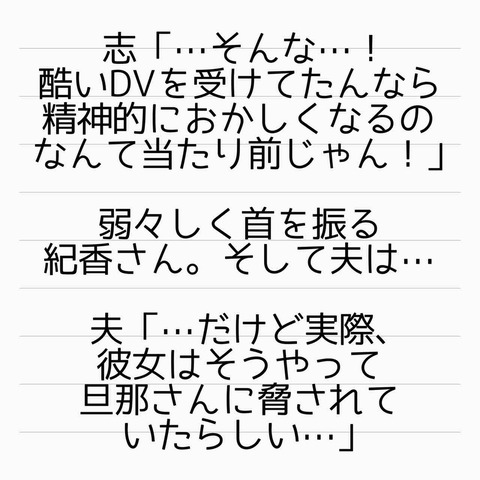 志「…そんな…！
酷いDVを受けてたんなら
精神的におかしくなるの
なんて当たり前じゃん！」
弱々しく首を振る
紀香さん。そして夫は…
夫「…だけど実際、
彼女はそうやって
旦那さんに脅されて
いたらしい…」